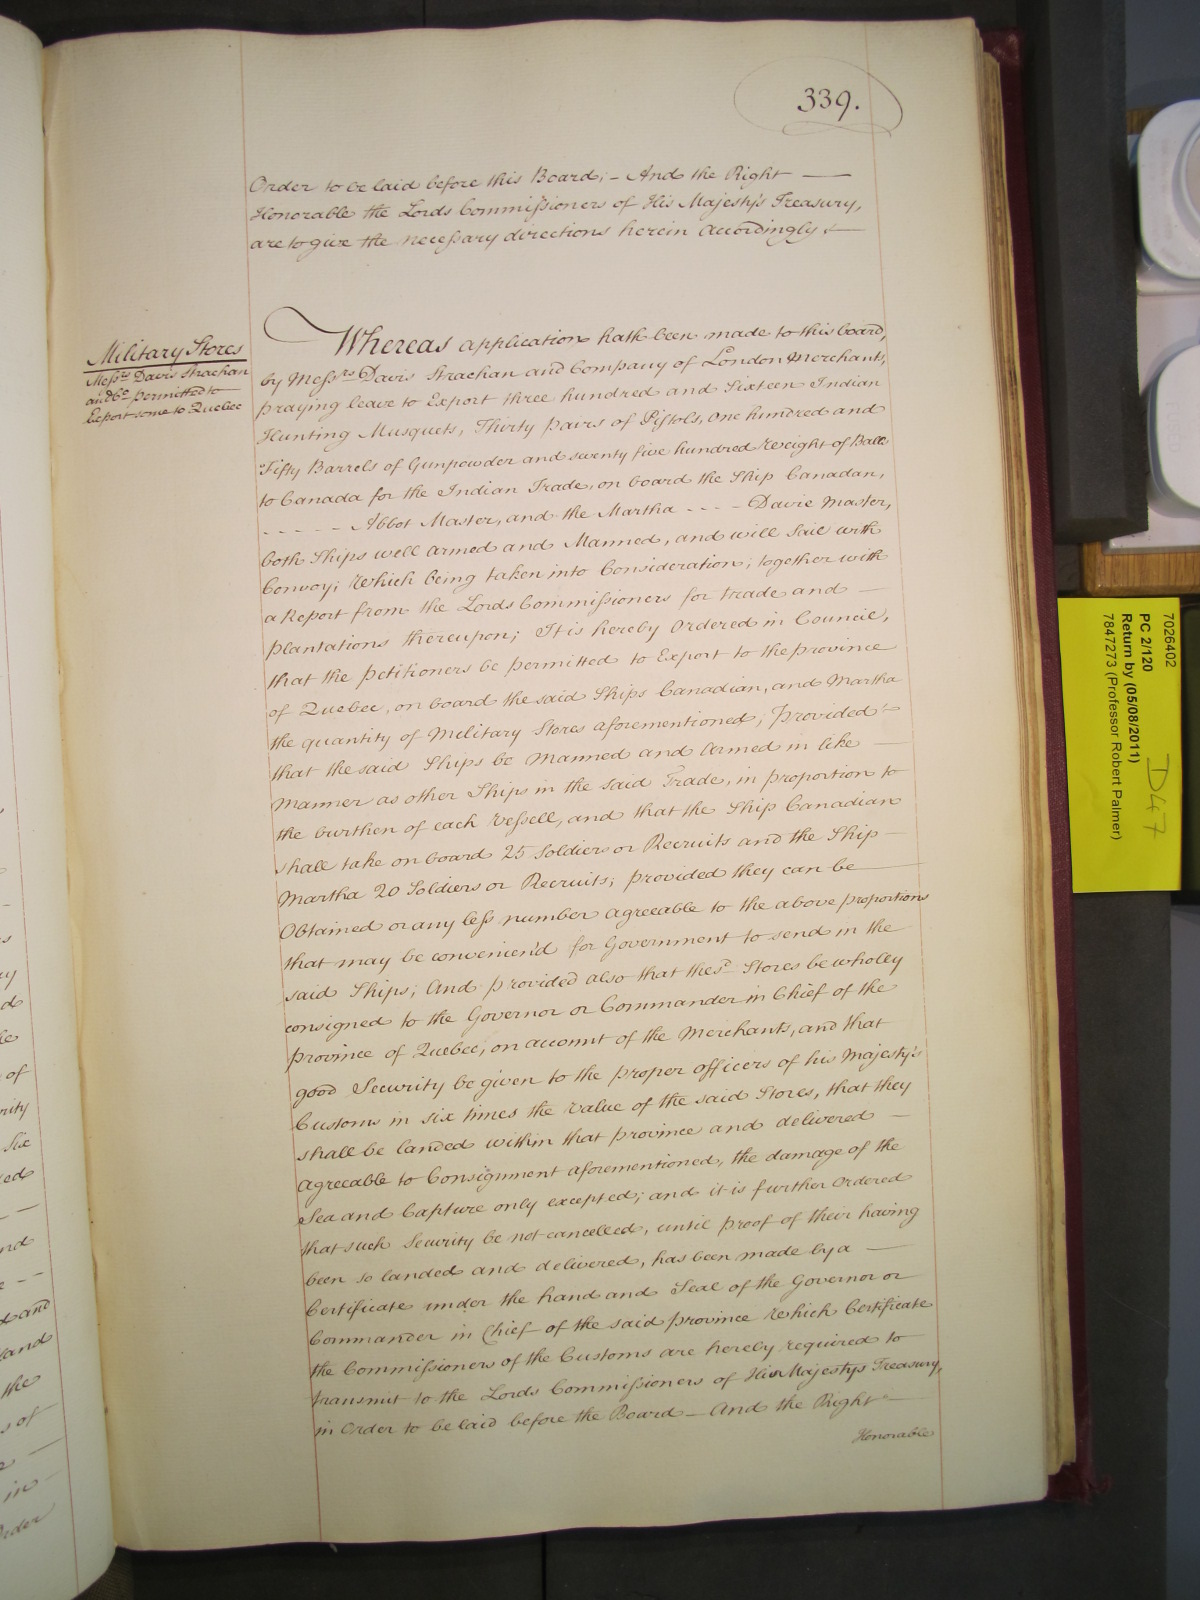 339.
Order to be laid before this Board; – And the Right —
Honorable the Lords Commissioners of His Majesty's Treasury,
are to give the necessary directions herein accordingly. —
Military Stores
Messrs Davis Strachan
and Co permitted to
Export some to Quebec
Whereas application hath been made to this board,
by Messrs Davis Strachan and Company of London Merchants,
praying leave to Export three hundred and Sixteen Indian
Hunting Musquets, Thirty pairs of Pistols, One hundred and
Fifty Barrels of Gunpowder and twenty five hundred Weight of Ball
to Canada for the Indian Trade, on board the Ship Canadan,
- - - - - Abbot Master, and the Martha - - - - Davie Master,
both Ships well armed and Manned, and will Sail with
Convoy; Which being taken into Consideration; together with
a Report from the Lords Commissioners for trade and —
plantations thereupon; It is hereby Ordered in Council,
that the petitioners be permitted to Export to the province
of Quebec, on board the said Ships Canadian, and Martha
the quantity of Military Stores aforementioned; provided
that the said Ships be Manned and Armed in like —
Manner as other Ships in the said Trade, in proportion to
the burthen of each Vessell, and that the Ship Canadian
shall take on board 25 Soldiers or Recruits and the Ship —
Martha 20 Soldiers or Recruits; provided they can be —
Obtained or any less number agreeable to the above proportions
that may be conveniend for Government to send in the
said Ships; And provided also that the sd. Stores be wholly
consigned to the Governor or Commander in Chief of the
province of Quebec, on account of the Merchants, and that
good Security be given to the proper officers of his Majesty's
Customs in six times the Value of the said Stores, that they
shall be landed within that province and delivered —
agreeable to Consignment aforementioned, the damage of the
Sea and Capture only excepted; and it is further Ordered
that such Security be not cancelled, until proof of their having
been so landed and delivered, has been made by a —
Certificate under the hand and Seal of the Governor or
Commander in Chief of the said province Which Certificate
the Commissioners of the Customs are hereby required to
transmit to the Lords Commissioners of His Majestys Treasury,
in Order to be laid before the Board — And the Right
Honorable
7026402
PC 2/120
Return by (05/08/2011)
7847273 (Professor Robert Palmer)
D47